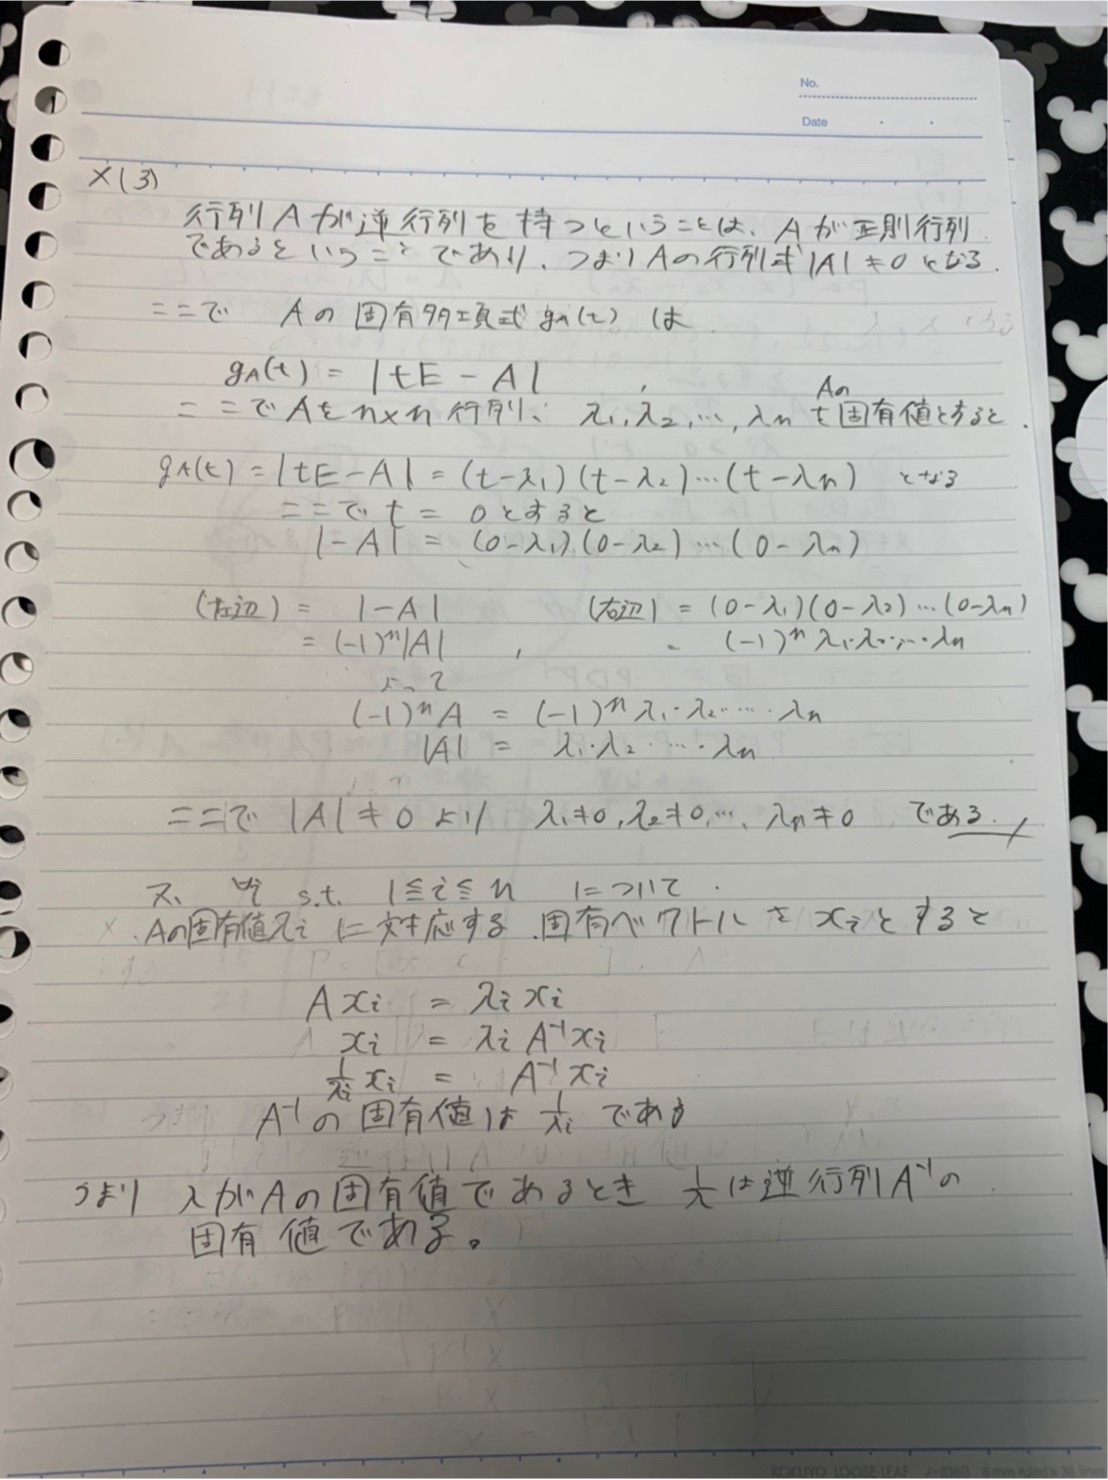 No.
Date
X(3)
行列Aが逆行列を持つということは、Aが正則行列
であるということであり、つまりAの行列式|A|≠0となる.
ここで Aの固有多項式gA(t)は
gA(t) = |tE - A|
ここでAをn×n行列、λ1, λ2, …, λnをAの固有値とすると.
gA(t) = |tE-A| = (t-λ1)(t-λ2)…(t-λn) となる
ここでt = 0とすると
|-A| = (0-λ1)(0-λ2)…(0-λn)
(左辺) = |-A| (右辺) = (0-λ1)(0-λ2)…(0-λn)
= (-1)^n|A| , = (-1)^n λ1·λ2·…·λn
よって
(-1)^n A = (-1)^n λ1·λ2·…·λn
|A| = λ1·λ2·…·λn
ここで |A|≠0より λ1≠0, λ2≠0, …, λn≠0 である.
又、∀i s.t. 1≦i≦n について.
Aの固有値λiに対応する固有ベクトルをxiとすると
Axi = λi xi
xi = λi A^-1 xi
1/λi xi = A^-1 xi
A^-1の固有値は 1/λi である
つまり λがAの固有値であるとき 1/λは逆行列A^-1の
固有値である。